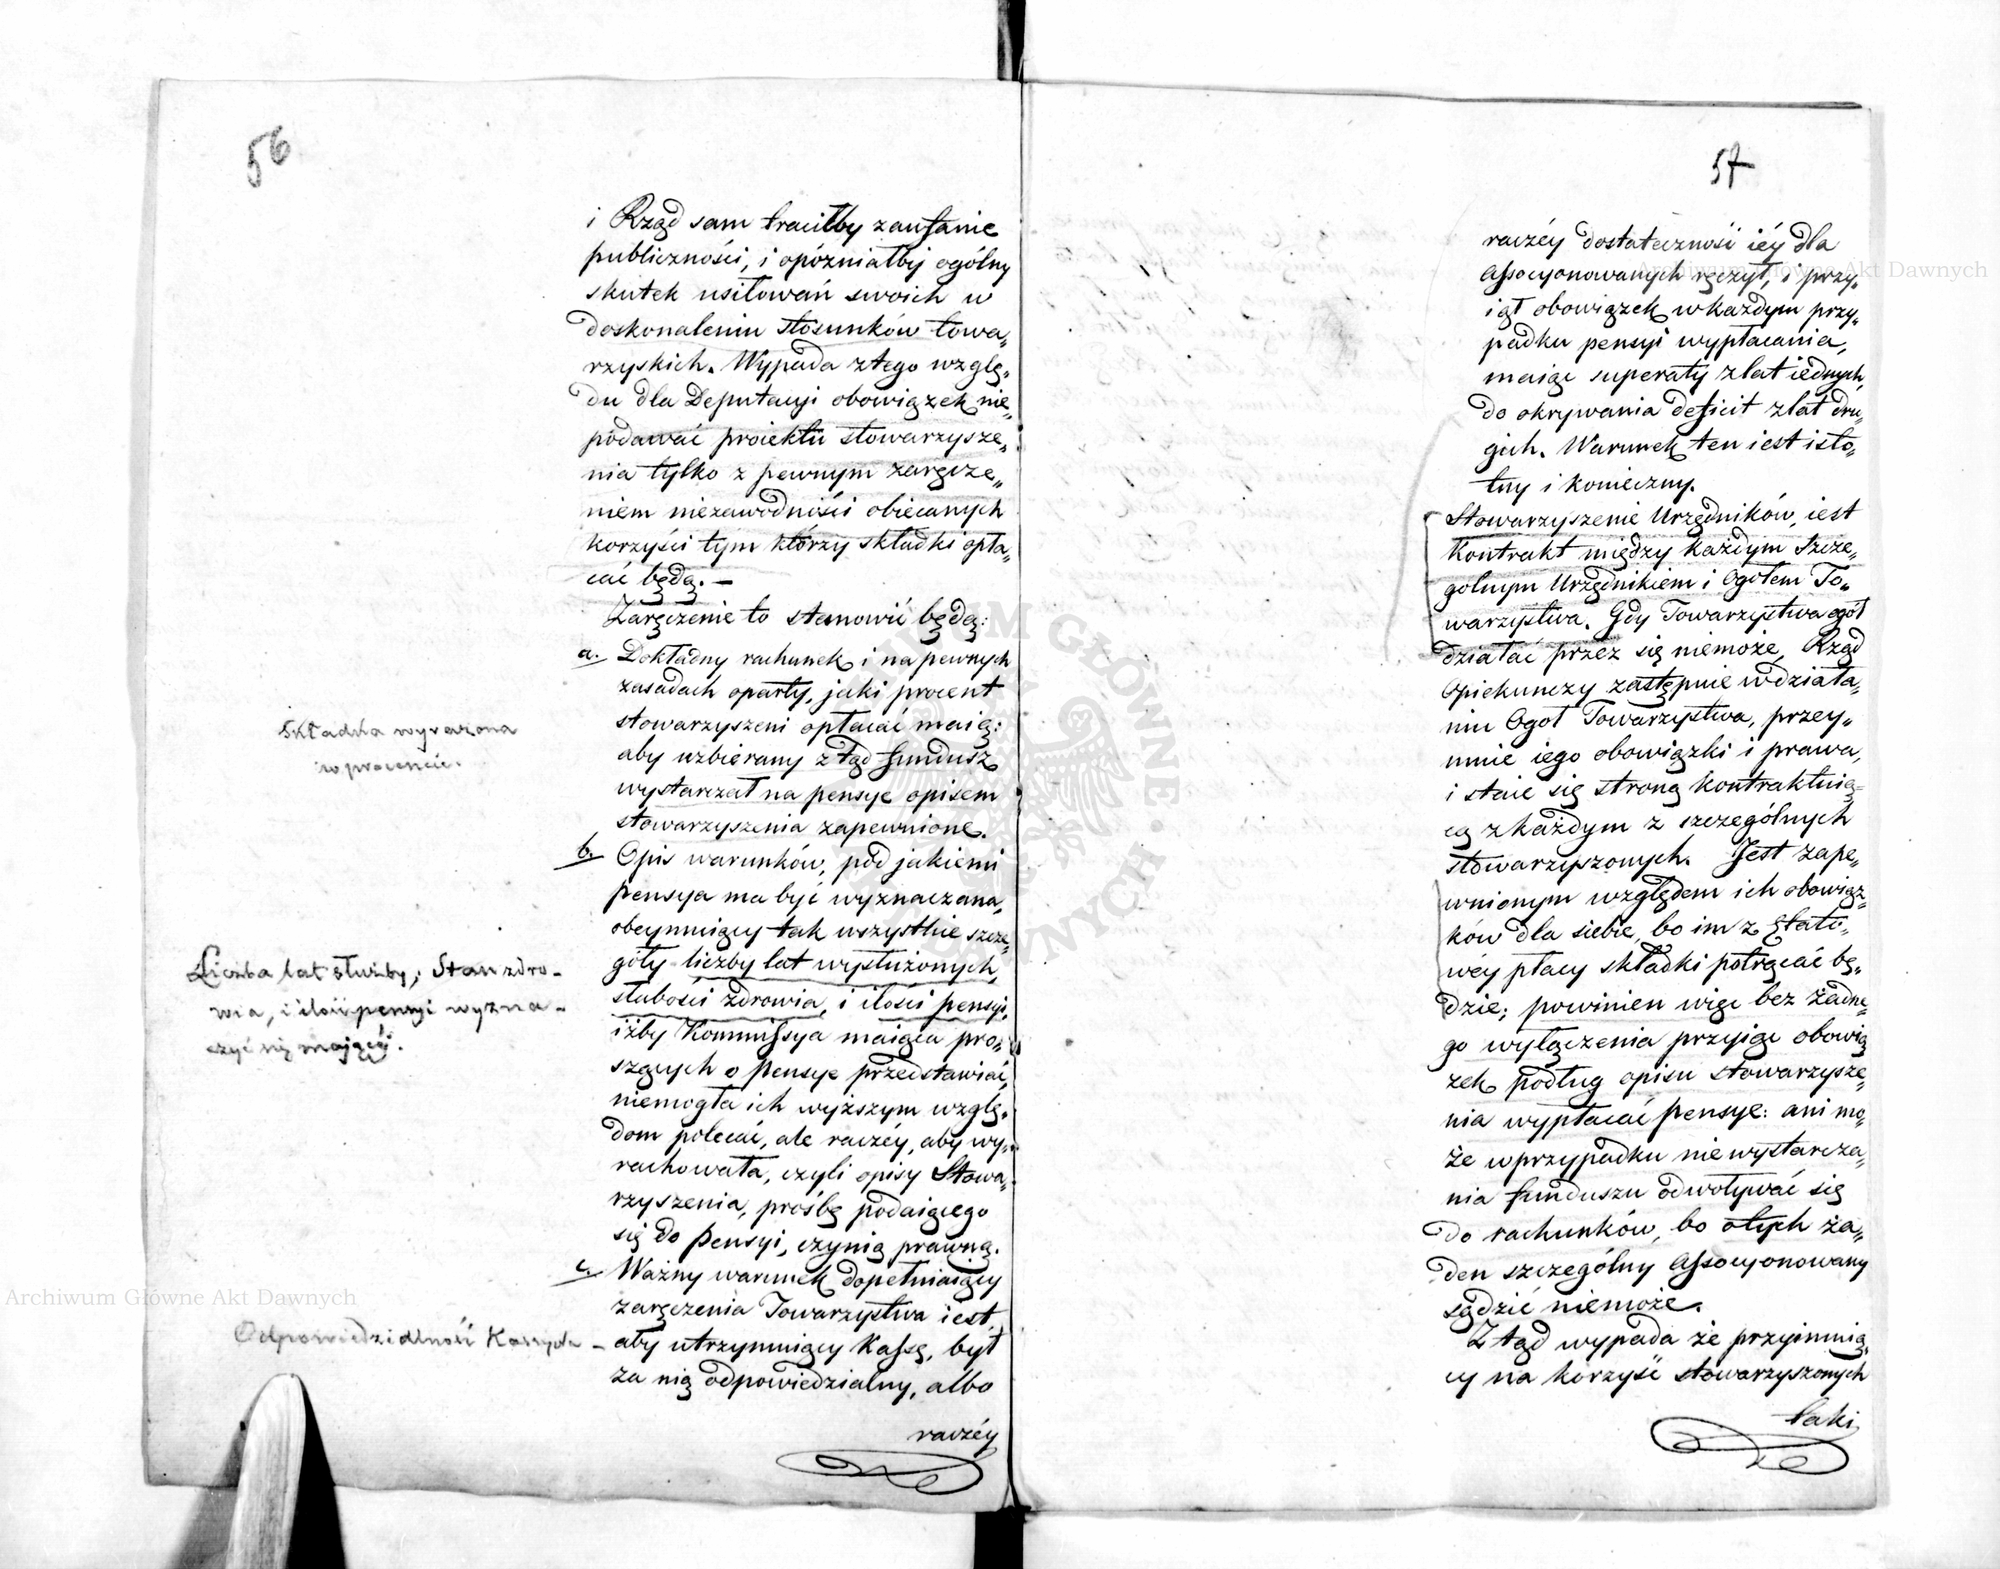 56
i Rząd sam traciłby zaufanie
publiczności, i opózniałby ogólny
skutek usiłowań swoich w
doskonaleniu stosunków towa„
rzyskich. Wypada z tego wzglę„
du dla Deputacyi obowiązek nie„
podawać proiektu stowarzysze„
nia tylko z pewnym zaręcze„
niem niezawodności obiecanych
korzyści tym którzy składki opła„
cać będą. —
Zaręczenie to stanowić będą:
a. Dokładny rachunek i na pewnych
zasadach oparty, jaki procent
stowarzyszeni opłacać maią:
aby uzbierany ztąd fundusz
wystarczał na pensye opisem
stowarzyszenia zapewnione.
b. Opis warunków, pod jakiemi
pensya ma być wyznaczana,
obeymuiący tak wszystkie szcze„
góły liczby lat wysłużonych,
słabości zdrowia, i ilości pensyi,
iżby Kommissya maiąca pro„
szących o pensye przedstawiać,
niemogła ich wyższym wzglę„
dom polecać, ale raczéy, aby wy„
rachowała, czyli opisy Stowa„
rzyszenia, prośbę podaiącego
się do pensyi, czynią prawną.
c. Ważny warunek dopełniaiący
zaręczenia Towarzystwa iest,
aby utrzymuiący Kassę, był
za nią odpowiedzialny, albo
raczéy
Składka wyrażona
w procencie.
Liczba lat służby, Stan zdro–
wia, i ilość pensyi wyzna–
czyć się maiącéy.
Odpowiedzialność Kassyera –
57
raczéy dostateczność iéy dla
Assocyonowanych ręczył, i przy„
iął obowiązek w każdym przy„
padku pensyi wypłacania,
maiąc superaty z lat iednych,
do okrywania deficit z lat dru„
gich. Warunek ten iest isto„
tny i konieczny.
Stowarzyszenie Urzędników, iest
Kontrakt między każdym szcze„
gólnym Urzędnikiem i Ogółem To„
warzystwa. Gdy Towarzystwa ogół
działać przez się niemoże, Rząd
Opiekunczy zastępuie w działa„
niu Ogół Towarzystwa, przey„
muie iego obowiązki i prawa,
i staie się stroną kontraktuią„
cą z każdym z szczególnych
stowarzyszonych. Jest zape„
wnionym względem ich obowiąz„
ków dla siebie, bo im z Etato„
wéy płacy składki potrącać bę„
dzie; powinien więc bez żadne„
go wyłączenia przyiąć obowią
zek podług opisu stowarzysze„
nia wypłacać pensye: ani mo„
że w przypadku nie wystarcza„
nia funduszu odwoływać się
do rachunków, bo o tych ża„
den szczególny Assocyonowany
sądzić niemoże.
Ztąd wypada że przyimuią„
cy na korzyść stowarzyszonych
taki
Archiwum Główne Akt Dawnych
Archiwum Główne Akt Dawnych